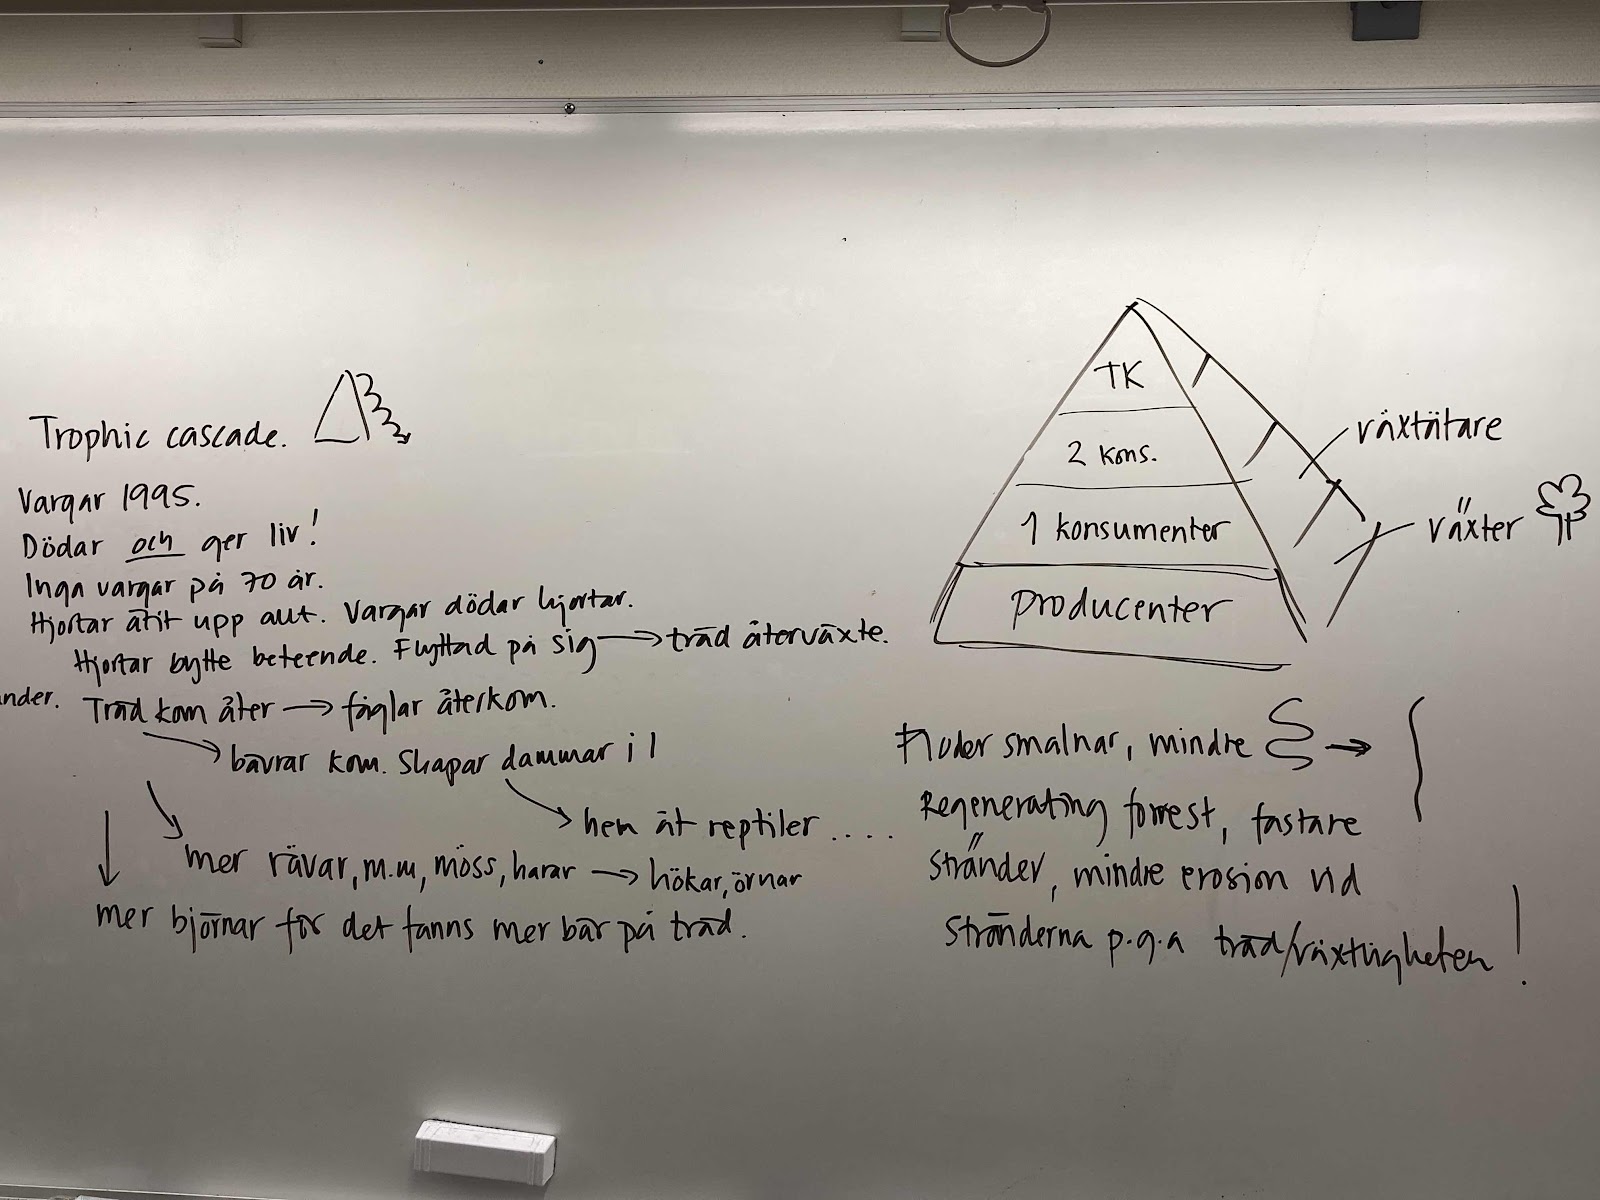 Trophic cascade.
Vargar 1995.
Dödar och ger liv!
Inga vargar på 70 år.
Hjortar ätit upp allt. Vargar dödar hjortar.
Hjortar bytte beteende. Flyttad på sig → träd återväxte.
nder. Träd kom åter → fåglar återkom.
bävrar kom. Skapar dammar i
hem åt reptiler ....
mer rävar, m.m, möss, harar → hökar, örnar
mer björnar för det fanns mer bär på träd.
TK
2 kons.
1 konsumenter
Producenter
växtätare
växter
Floder smalnar, mindre →
Regenerating forrest, fastare
stränder, mindre erosion vid
stränderna p.g.a träd/växtligheten!